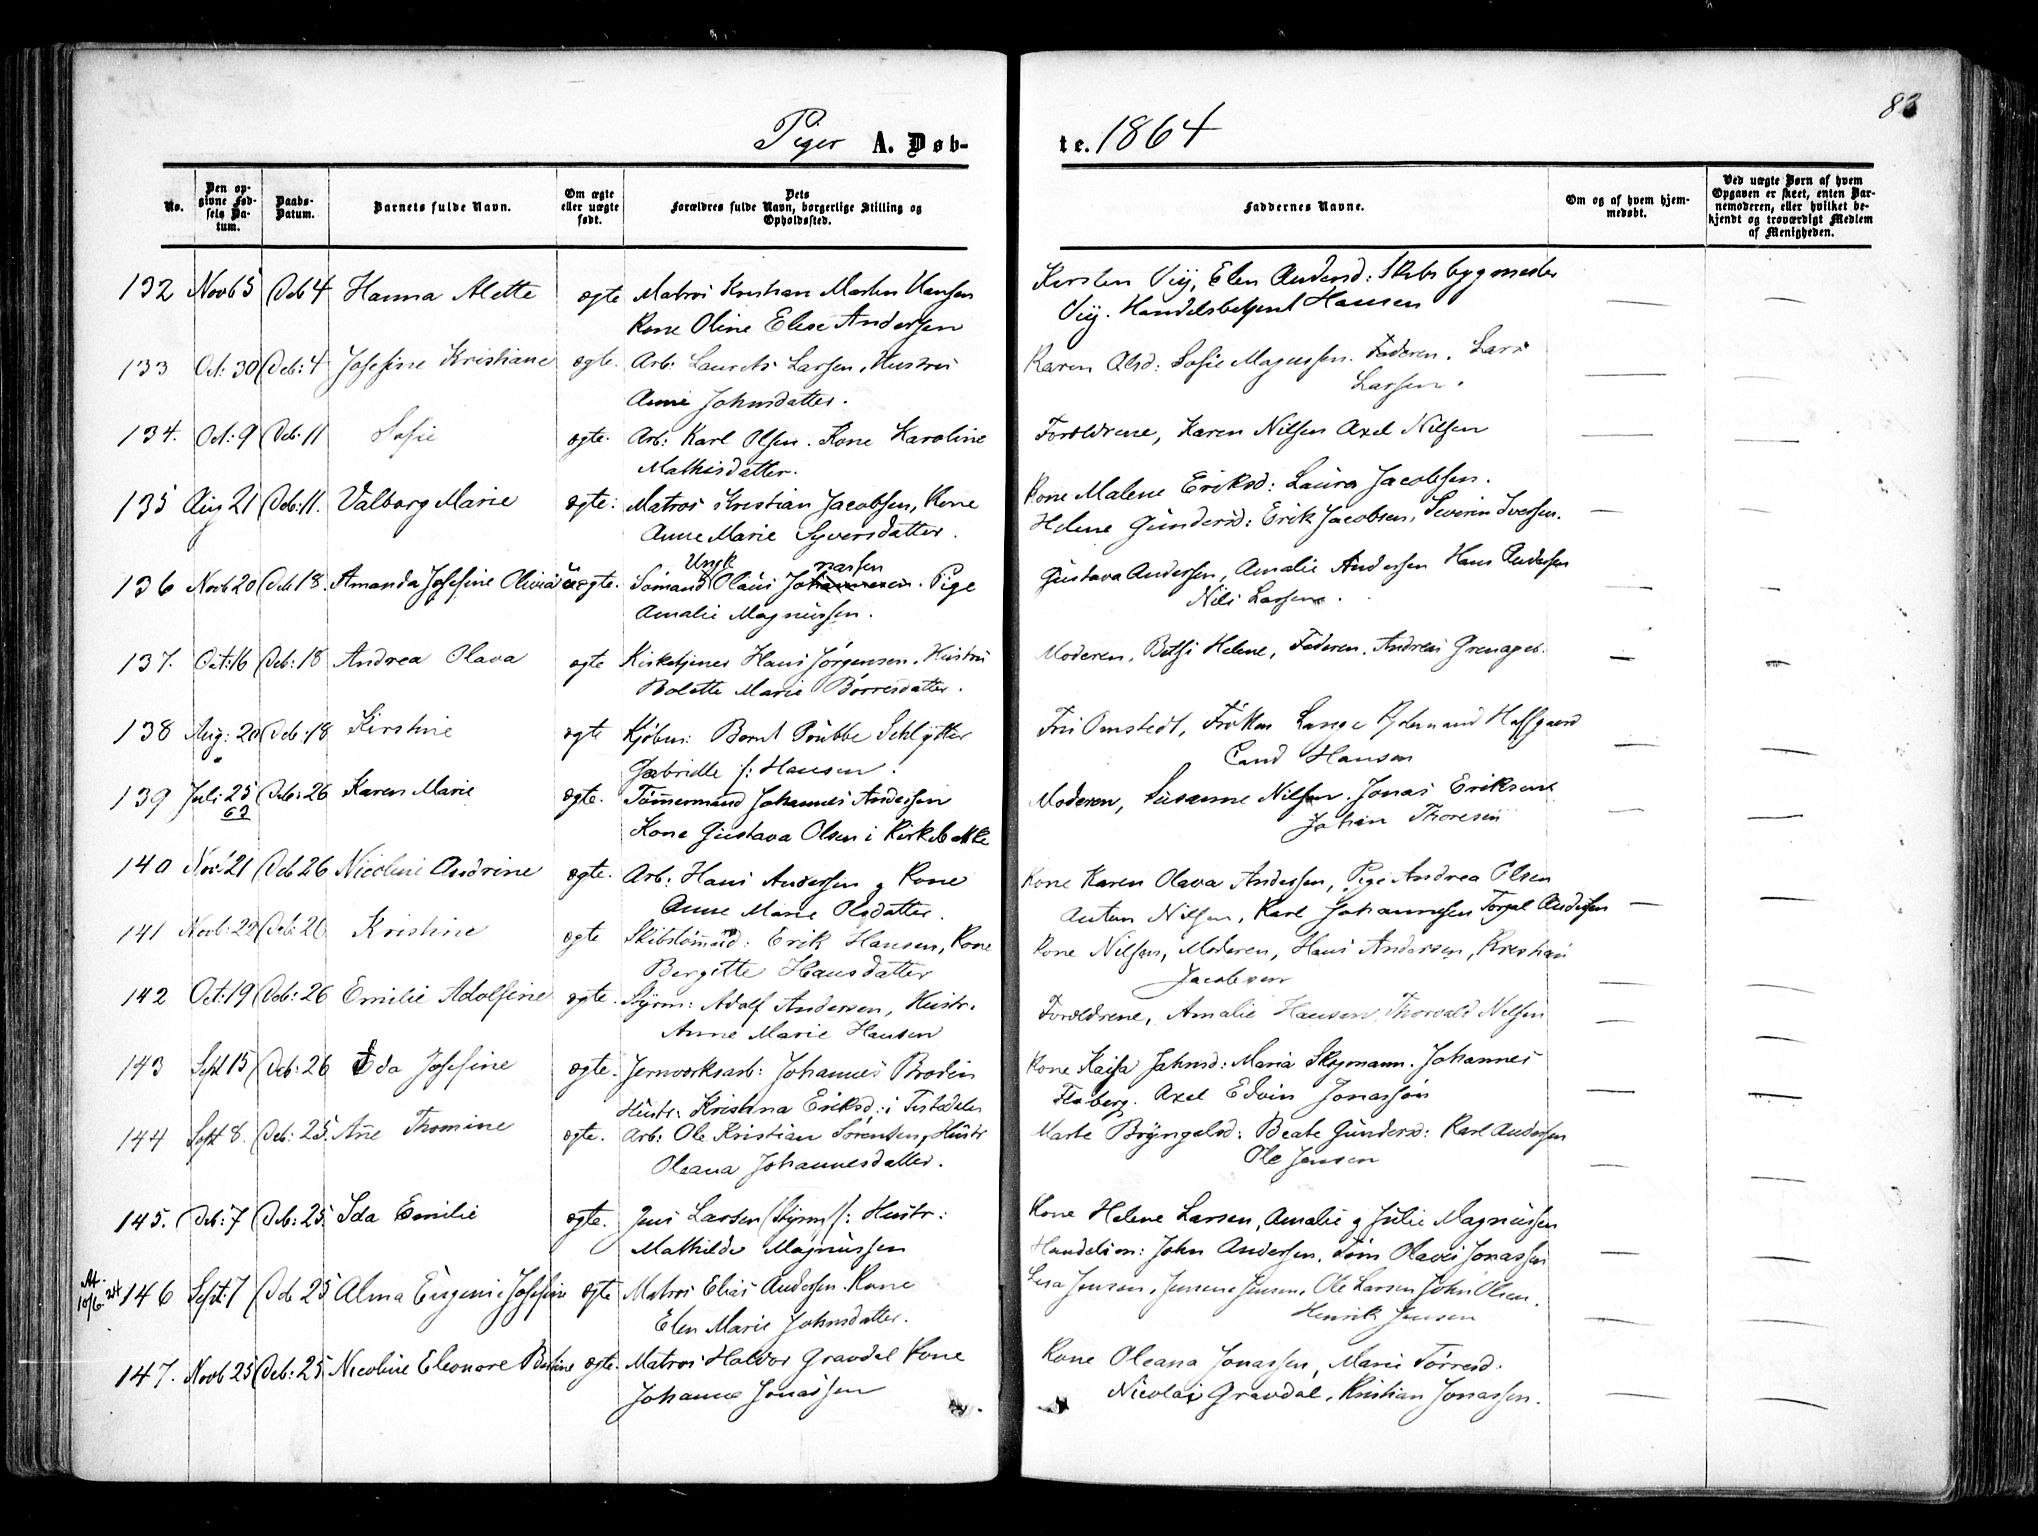 83
Piger A. Døb-
te. 1864
No.
Den op-
givne Fød-
sels Da-
tum.
Daabs-
Datum.
Barnets fulde Navn.
Om ægte
eller uægte
født.
Dets
Forældres fulde Navn, borgerlige Stilling og
Opholdssted.
Faddernes Navne.
Om og af hvem hjem-
medøbt.
Ved uægte Børn af hvem
Opgaven er skeet, enten Bar-
nemoderen, eller hvilket be-
kjendt og troværdigt Medlem
af Menigheden.
132 Novb 5 Deb 4 Hanna Alette ægte Matros Kristian Martin Hansen
Kone Oline Elise Andersen
Kirsten Viij, Elen Andersd: Skibsbygmester
Viij. Handelsbetjent Hansen
133 Oct: 30 Deb: 4 Josefine Kristiane ægte. Arb: Laurits Larsen, Hustru
Anne Johnsdatter.
Karen Olsd: Sofie Magnussen. Faderen. Lars
Larsen.
134. Oct: 9 Deb: 11 Sofie ægte. Arb: Karl Olsen. Kone Karoline
Mathisdatter.
Forældrene, Karen Nilsen Axel Nilsen
135 Aug 21 Deb: 11. Valborg Marie ægte: Matros Kristian Jacobsen, Kone
Anne Marie Syversdatter.
Kone Malene Eriksd: Laura Jacobsen.
Helene Gundersd: Erik Jacobsen, Severin Iversen.
136 Novb 20 Deb 18. Amanda Josefine Olivia uægte. Sømand Ungk Olaus Johannesen nassen. Pige
Amalie Magnussen.
Gustava Andersen, Amalie Andersen Hans Andersen
Nils Larsen.
137. Oct: 16 Deb: 18 Andrea Olava ægte Kirketjener Hans Jørgensen. Hustru
Bolette Marie Børresdatter.
Moderen, Betsi Helene, Faderen, Andreas Grenager.
138 Aug: 20 Deb: 18 Kirstine ægte Kjøbm: Bernt Pøubbe Schlytter
Gabrielle f: Hansen.
Fru Omstedt, Frøken Lange Hoffgaard
Cand Hansen
139 Juli: 25 Deb: 26 Karen Marie ægte. Tømmermand Johannes Andersen
63
Kone Gustava Olsen i Kirkebakke
Moderen, Susanne Nilsen. Jonas Eriksen
Johan Thoresen
140 Nov: 21 Deb 26 Nicoline Andrine ægte. Arb: Hans Andersen g Kone
Anne Marie Olsdatter.
Kone Karen Olava Andersen, Pige Andrea Olsen
Anton Nilsen, Karl Johannesen Torgal Andersen
141 Novb: 22 Deb: 26 Kristine ægte Skibstømmd: Erik Hansen, Kone
Bergitte Hansdatter
Kone Nilsen, Moderen, Hans Andersen, Kristian
Jacobsen
142 Oct: 19 Deb: 26 Emilie Adolfine ægte. Styrm: Adolf Andersen, Hustr.
Anne Marie Hansen
Forældrene, Amalie Hansen Thorvald Nilsen
143 Sept 15 Deb: 26 Ida Josefine ægte. Jernværksarb: Johannes Brodin
Hustr: Kristina Eriksd: i Tistedalen
Kone Kaisa Jahnsd: Maria Skogmann. Johannes
Floberg. Axel Edvin Jonassøn
144 Sept 8. Deb: 25. Ane Thomine ægte. Arb: Ole Kristian Sørensen, Hustr
Oleana Johannesdatter.
Marte Bryngelsd: Beate Gundersd: Karl Andersen
Ole Jensen
145. Deb: 7 Deb: 25 Ida Emilie ægte. Jens Larsen (Styrm) f: Hustr:
Mathilde Magnussen
Kone Helene Larsen, Amalie g Julie Magnussen
Handelsm: John Andersen, Tøm Olaves Jonassen
At.
10/6. 24
146 Sept: 7 Deb 25 Alma Eugenie Josefine ægte Matros Elias Andersen Kone
Elen Marie Johnsdatter.
Lisa Jensen, Jensene Jensen, Ole Larsen John Olsen.
Henrik Jensen
147. Novb 25 Deb: 25 Nicoline Eleonore Bertine ægte. Matros Haldor Gravdal Kone
Johanne Jonassen
Kone Oleana Jonassen, Marie Torresd.
Nicolai Gravdal, Kristian Jonassen.